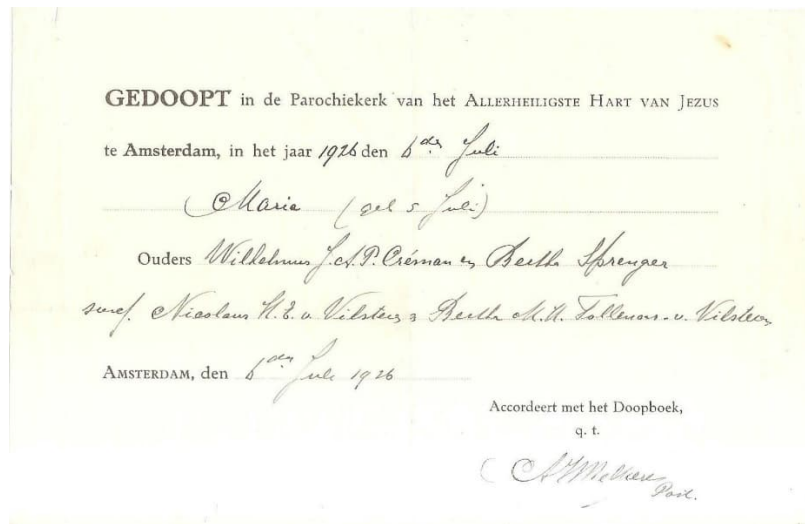 GEDOOPT in de Parochiekerk van het ALLERHEILIGSTE HART VAN JEZUS
te Amsterdam, in het jaar 1926 den 6de Juli
Maria (geb 5 Juli)
Ouders Wilhelmus J.A.P. Créman en Bertha Sprenger
susc. Nicolaus H.E. v. Vilsteren & Bertha M.H. v. Vilsteren
AMSTERDAM, den 6den Juli 1926
Accordeert met het Doopboek,
q. t.
Past.